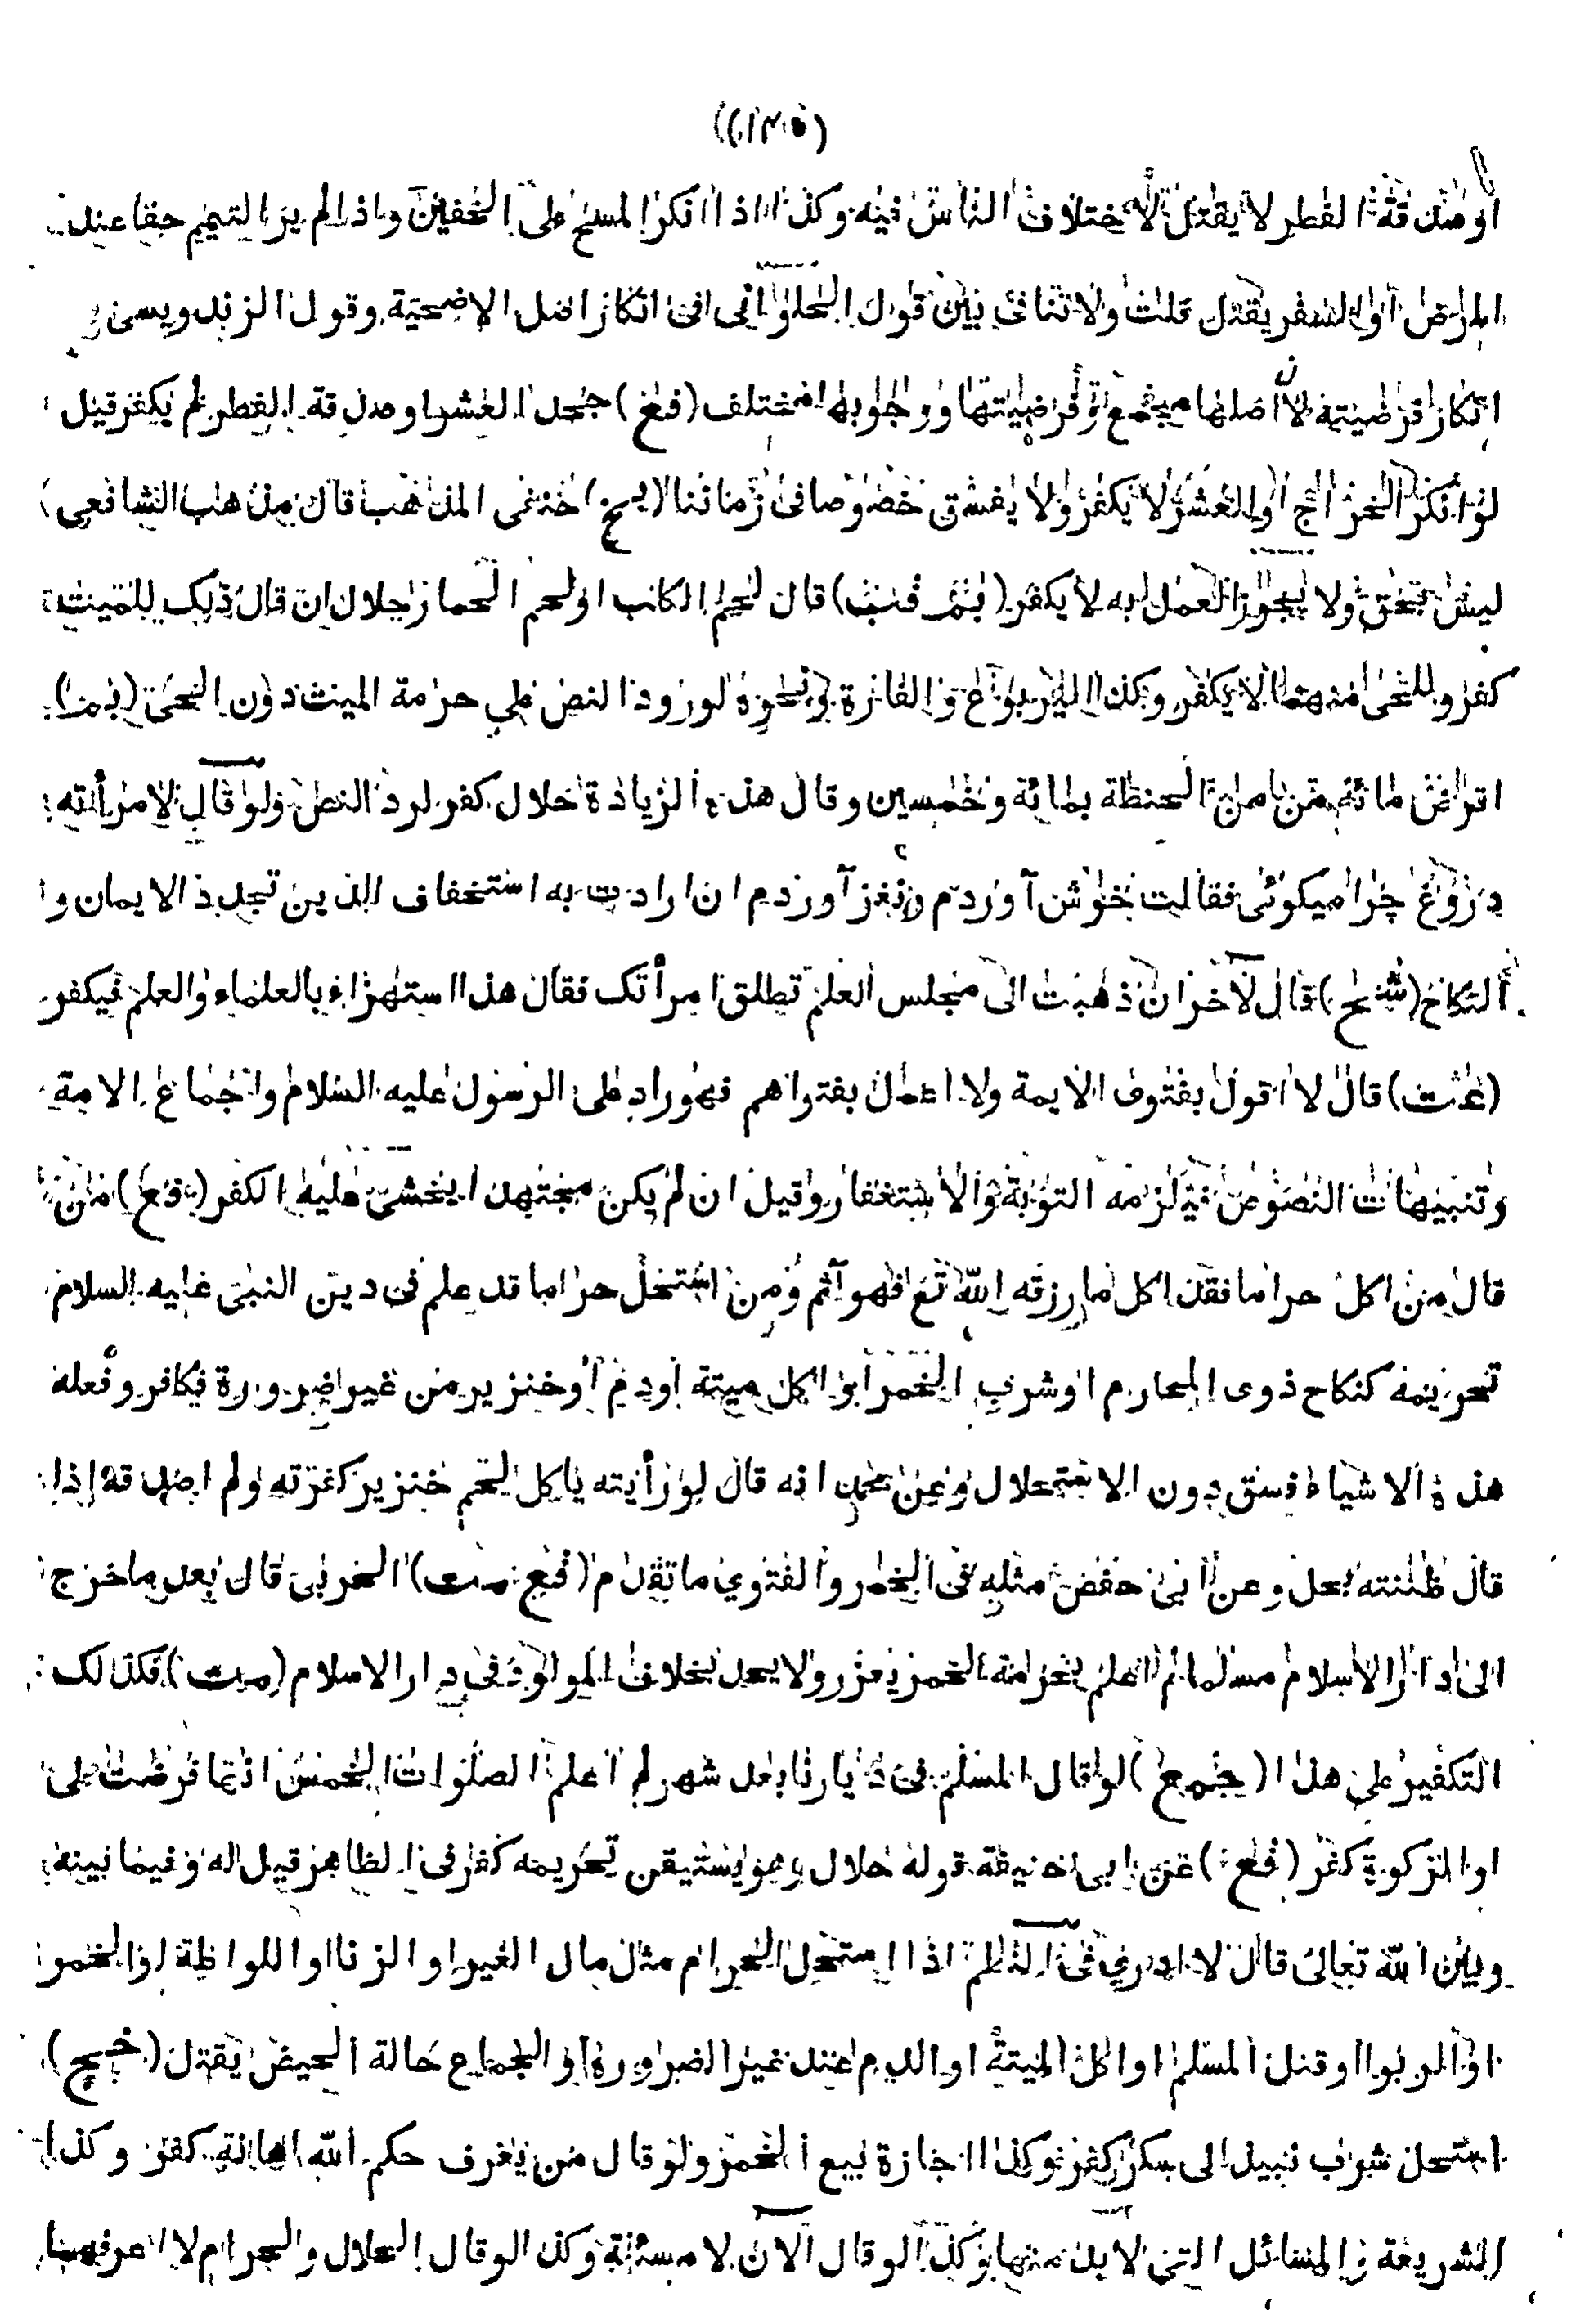 (١٣٥)
او صدقة الفطر لا يقتل لاختلاف الناس فيه وكذا اذا انكر المسح على الخفين واذا لم ير التيمم حقا عند
المرض او السفر يقتل قلت ولا تنافى بين قول الحلوانى فى انكار اصل الاضحية وقول الزندويسى
انكار فرضيته لان اصلها مجمع وفرضيتها ووجوبها مختلف (فع) جحد العشر او صدقة الفطر لم يكفر قيل
لو انكر الخراج او العشر لا يكفر ولا يفسق خصوصا فى زماننا (يخ) حنفى المذهب قال مذهب الشافعى
ليس بحق ولا يجوز العمل به لا يكفر ( ) قال لحم الكلب او لحم الحمار حلال ان قال ذلك للميت
كفر وللحى منهما لا يكفر وكذا اليربوع والفارة ونحوه لورود النص على حرمة الميت دون الحى ( )
اقرض مائة من من الحنطة بمائة وخمسين وقال هذه الزيادة حلال كفر لرد النص ولو قال لامرأته
دروغ چرا ميكوئى فقالت خوش آوردم ونغز آوردم ان ارادت به استخفاف الدين تجدد الايمان وا
النكاح (شح) قال لآخر ان ذهبت الى مجلس العلم تطلق امرأتك فقال هذا استهزاء بالعلماء والعلم فيكفر
(عت) قال لا اقول بفتوى الايمة ولا اعمل بفتواهم فهو راد على الرسول عليه السلام واجماع الامة
وتنبيهات النصوص فيلزمه التوبة والاستغفار وقيل ان لم يكن مجتهدا يخشى عليه الكفر (فع) من
قال من اكل حراما فقد اكل ما رزقه الله تع فهو آثم ومن استحل حراما قد علم فى دين النبى عليه السلام
تحريمه كنكاح ذوى المحارم او شرب الخمر او اكل ميتة او دم او خنزير من غير ضرورة فكافر وفعله
هذه الاشياء فسق دون الاستحلال وعن محمد انه قال لو رأيته ياكل لحم خنزير كفرته ولم اصدقه اذا
قال ظننته يحل وعن ابى حفص مثله فى الخمر والفتوى ما تقدم (فع مت) الحربى قال بعد ما خرج
الى دار الاسلام مسلما لم اعلم بحرمة الخمر يعزر ولا يحد بخلاف المولود فى دار الاسلام (مت) فكذلك
التكفير على هذا (جمع) لو قال المسلم فى ديارنا بعد شهر لم اعلم الصلوات الخمس انها فرضت على
او الزكوة كفر (فع) عن ابى حنيفة قوله حلال وهو يستيقن تحريمه كفر فى الظاهر قيل له وفيما بينه
وبين الله تعالى قال لا ادرى فى النظم اذا استحل الحرام مثل مال الغير او الزنا او اللواطة او الخمر
او الربوا او قتل المسلم او اكل الميتة او الدم عند غير الضرورة او الجماع حالة الحيض يقتل (خج)
استحل شرب نبيذ الى سكر كفر وكذا اجازة بيع الخمر ولو قال من يعرف حكم الله اهانة كفر وكذا
الشريعة والمسائل التى لا بد منها وكذا لو قال الآن لا مسئلة وكذا لو قال الحلال والحرام لا اعرفهما